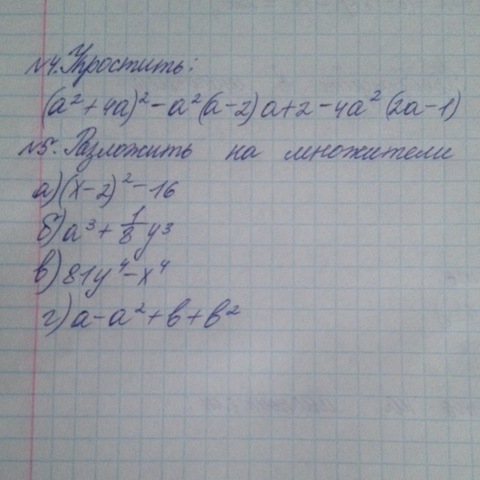 №4. Упростить:
(a²+4a)²-a²(a-2)a+2-4a²(2a-1)
№5. Разложить на множители
а)(x-2)²-16
б)a³+1/8y³
в)81y⁴-x⁴
г)a-a²+b+b²